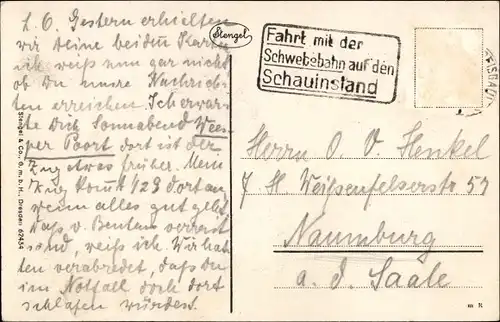 L. O. Gestern erhielten
wir Deine beiden Karten
ich weiß nun gar nicht
ob Du unsre Nachrich-
ten erreichen. Ich erwar-
te Dich Sonnabend Wees-
per Poort dort ist der
Zug etwas früher. Mein
Zug kommt 123 dort an
wenn alles gut geht.
Daß v. Bentams verreist
sind, weiß ich. Wir hat-
ten verabredet, daß Du
im Notfall doch dort
schlafen würdest.
Stengel
Stengel & Co., G. m. b. H., Dresden 62434
Fahrt mit der
Schwebebahn auf den
Schauinsland
Herrn O. V. Henkel
Weißenfelserstr 57
Naumburg
a. d. Saale
m K